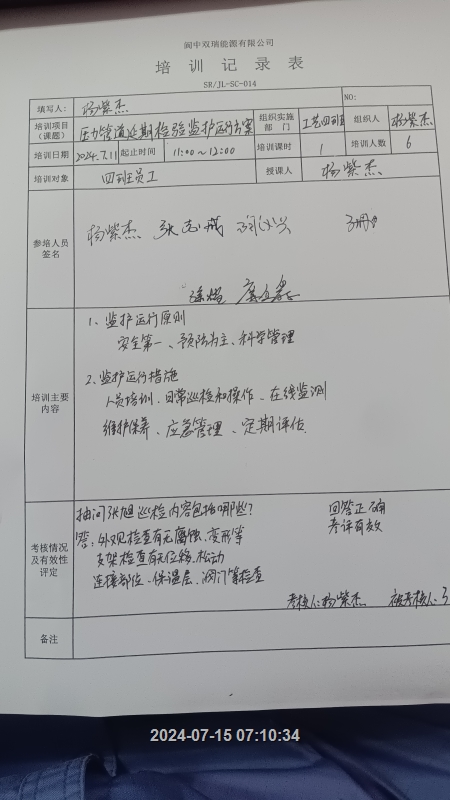 阆中双瑞能源有限公司
培训记录表
SR/JL-SC-014
填写人: 杨紫杰 NO:
培训项目（课题） 压力管道延期检验监护运行方案 组织实施部门 工艺四班 组织人 杨紫杰
培训日期 2024.7.11 起止时间 11:00~12:00 培训课时 1 培训人数 6
培训对象 四班员工 授课人 杨紫杰
参培人员签名 杨紫杰
培训主要内容
1、监护运行原则
安全第一、预防为主、科学管理
2、监护运行措施
人员培训、日常巡检和操作、在线监测
维护保养、应急管理、定期评估
考核情况及有效性评定
抽问张旭巡检内容包括哪些? 回答正确
答:外观检查有无腐蚀、变形等 考评有效
支架检查有无位移、松动
连接部位、保温层、阀门等检查
考核人:杨紫杰 被考核人:
备注
2024-07-15 07:10:34